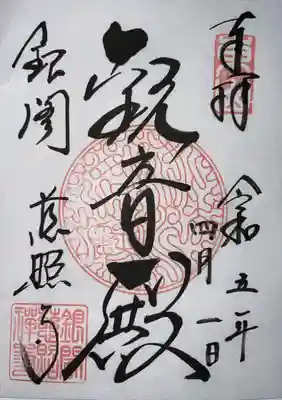 奉拝
令和五年
四月一日
観音殿
銀閣
慈照寺